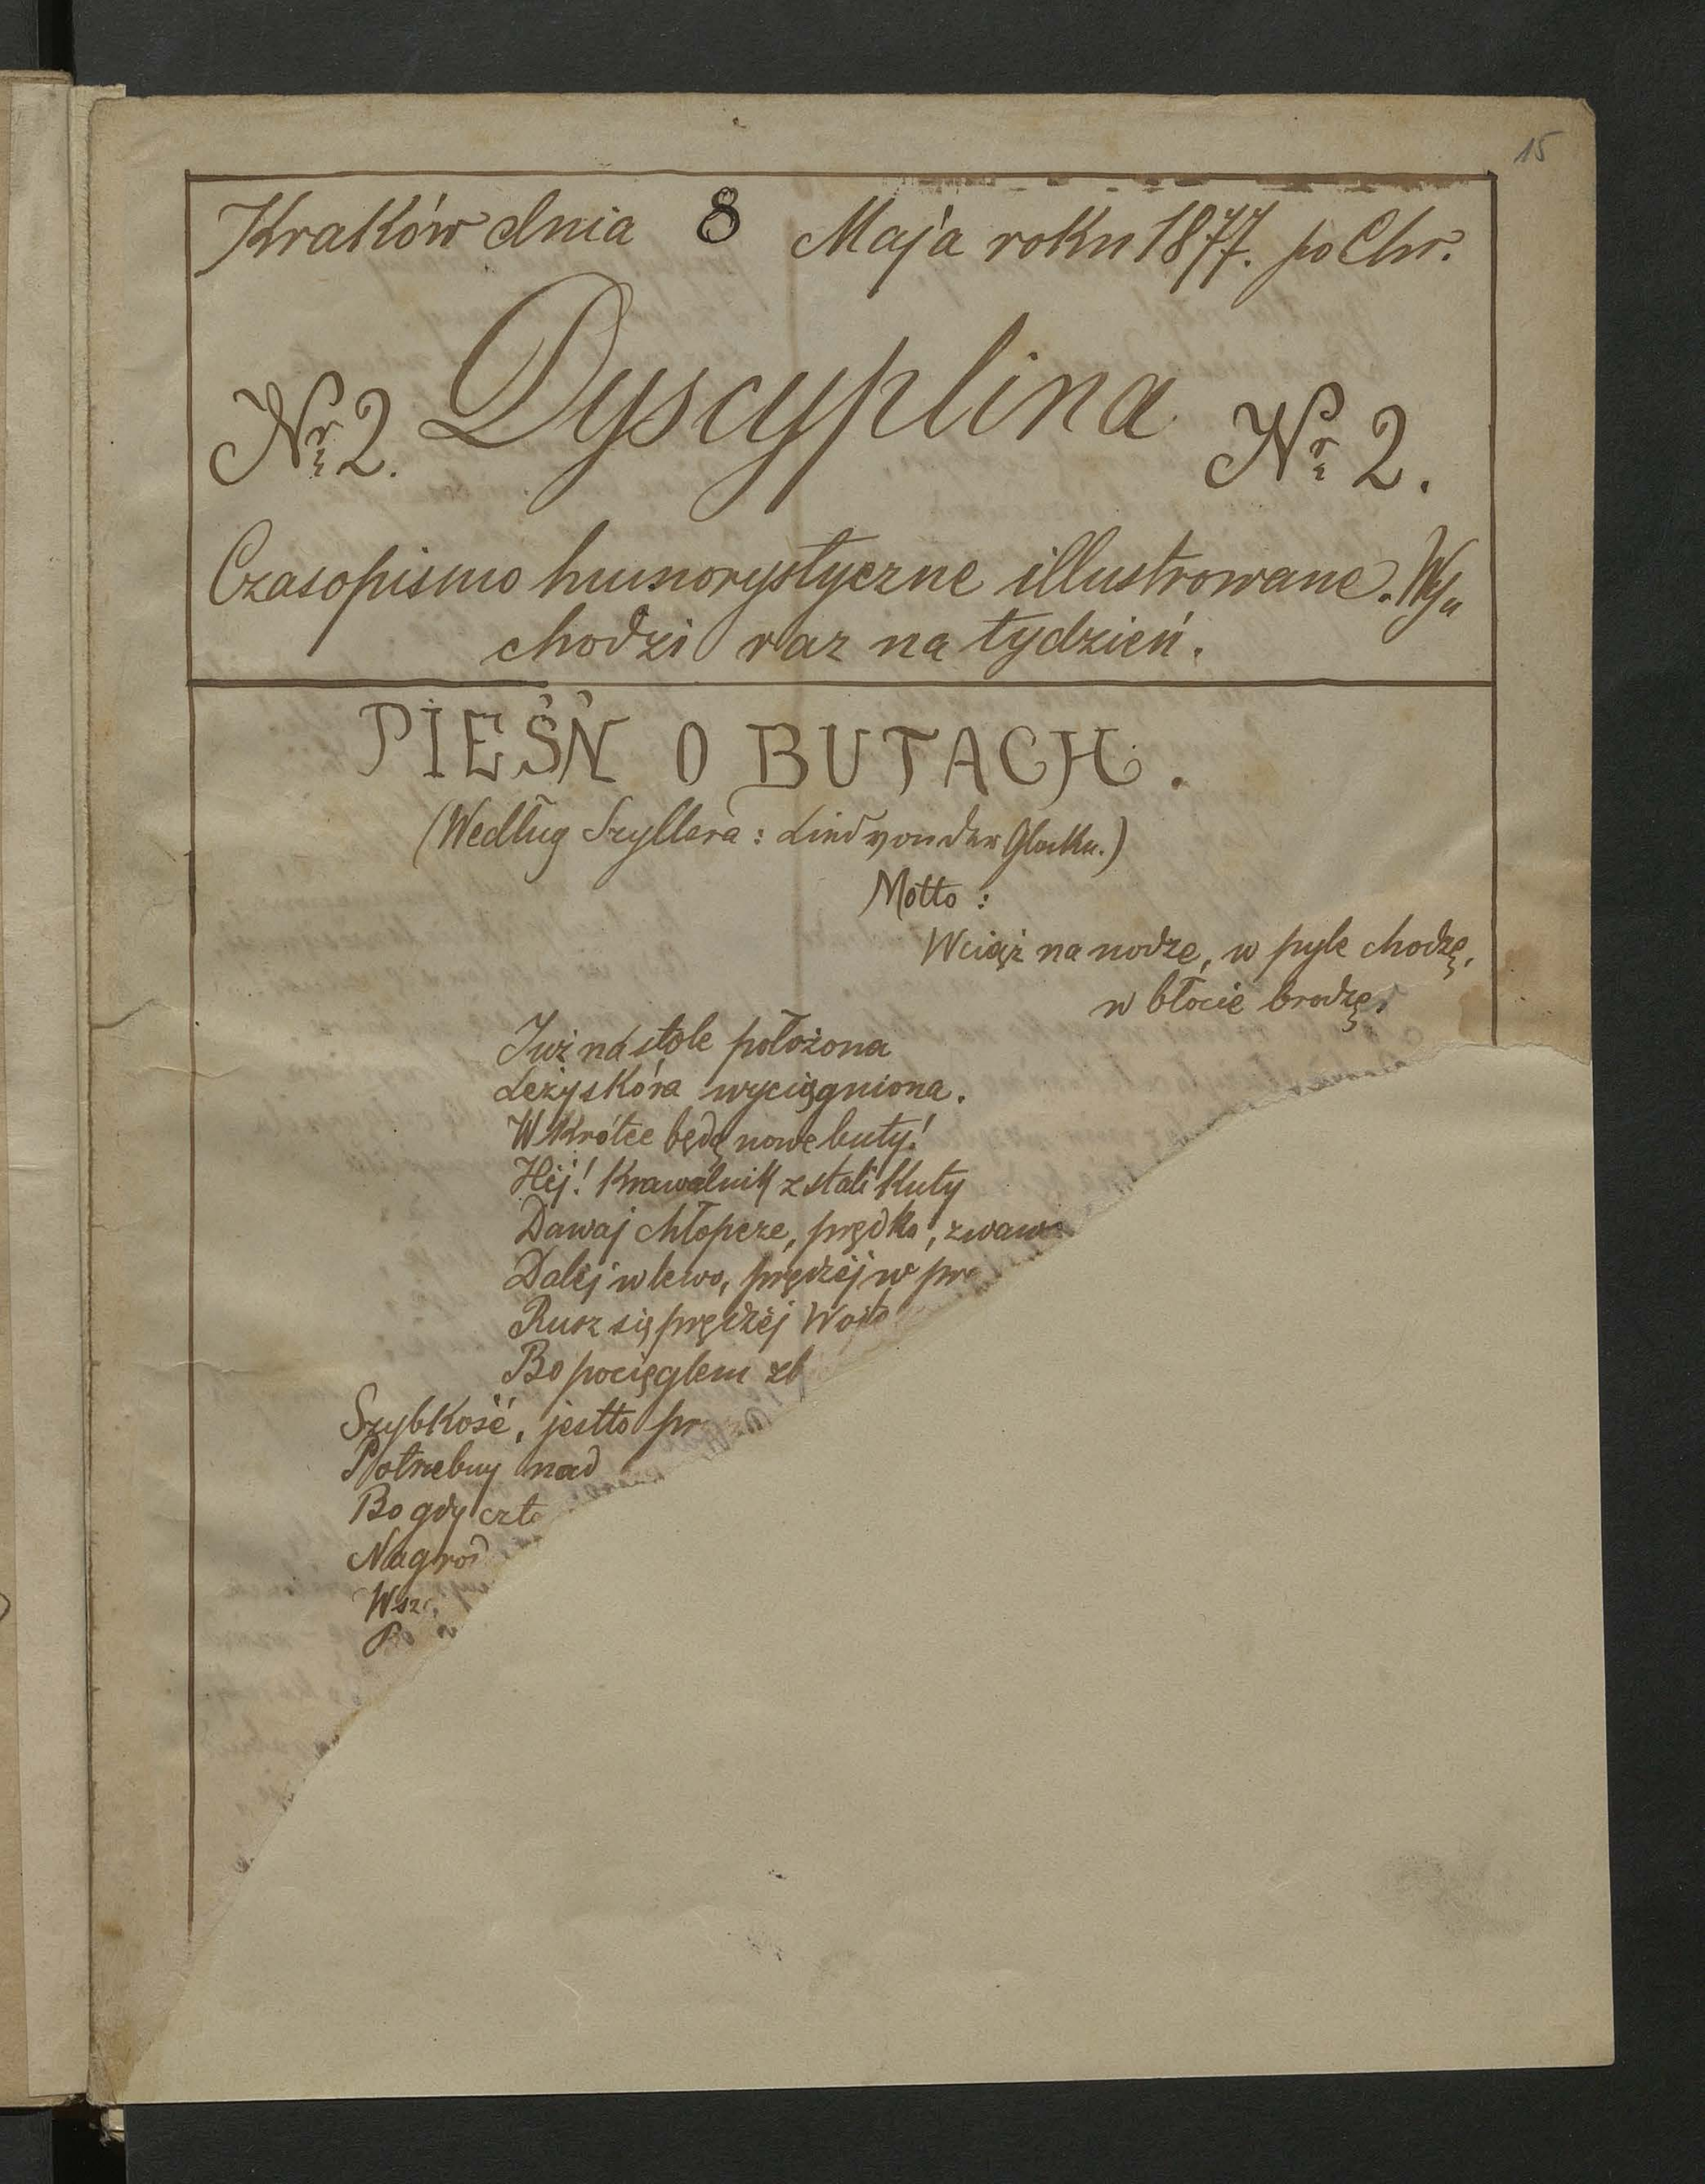 15
Kraków dnia 8 Maja roku 1877. po Chr.
Nr 2. Dyscyplina Nr 2.
Czasopismo humorystyczne illustrowane. Wy„
chodzi raz na tydzień.
PIEŚŃ O BUTACH.
(Według Szyllera: Lied von der Glocke.)
Motto:
Wciąż na nodze, w pyle chodzę,
w błocie brodzę.
Już na stole położona
Leży skóra wyciągniona.
Wkrótce będą nowe buty!
Hej! Krawalnik z stali kuty
Dawaj chłopcze, prędko, zwaw
Dalej w lewo, prędzej w pr
Rusz się prędzej
Bo pocięglem zb
Szybkość, jestto pr
Potrzebny nad
Bo gdy czło
Nagrod
Wsz
P